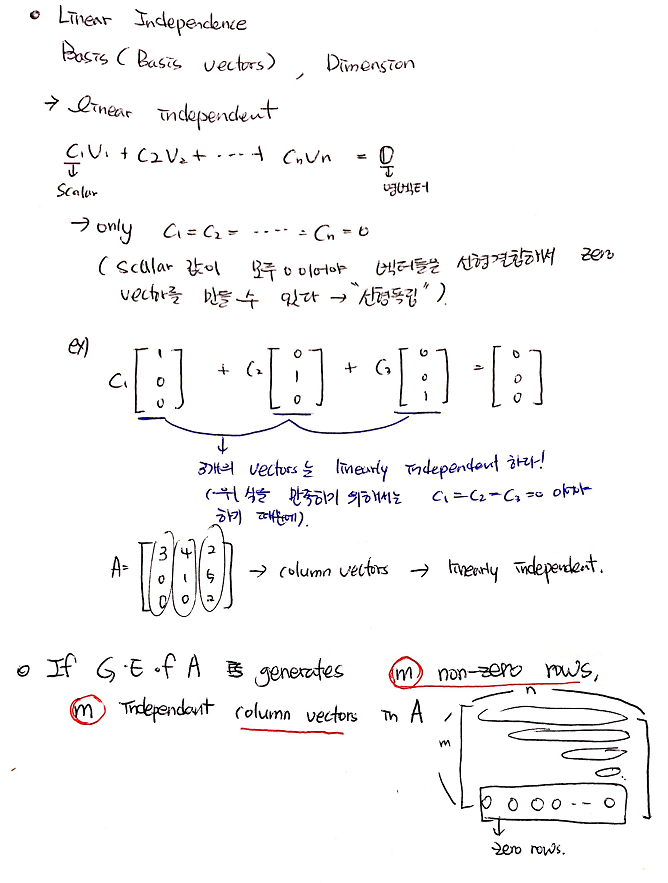 • Linear Independence
Basis (Basis vectors), Dimension
→ linear independent
C₁V₁ + C₂V₂ + ····· + CnVn = 0
↓ ↓
Scalar 영벡터
→ only C₁ = C₂ = ····· = Cn = 0
(scalar 값이 모두 0이어야 벡터들을 선형결합해서 zero
vector를 만들 수 있다 → "선형독립").
ex)
C₁ [1 0 0] + C₂ [0 1 0] + C₃ [0 0 1] = [0 0 0]
3개의 vectors는 linearly independent 하다!
(위 식을 만족하기 위해서는 C₁=C₂=C₃=0 이어야
하기 때문에).
A= [3 4 2
0 1 5
0 0 2] → column vectors → linearly independent.
o If G·E of A generates m non-zero rows,
m Independant column vectors in A
n
m
0 0 0 0 -- 0
zero rows.